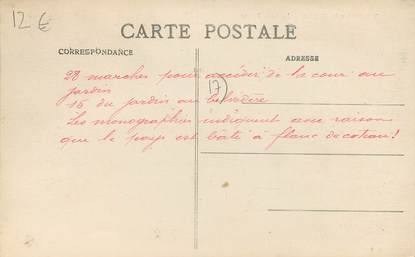 12 €
CARTE POSTALE
CORRESPONDANCE
ADRESSE
28 marches pour accéder de la cour au
jardin
17
16 du jardin au belvédère
Les monographies indiquent avec raison
que le pays est bâti à flanc de coteau!